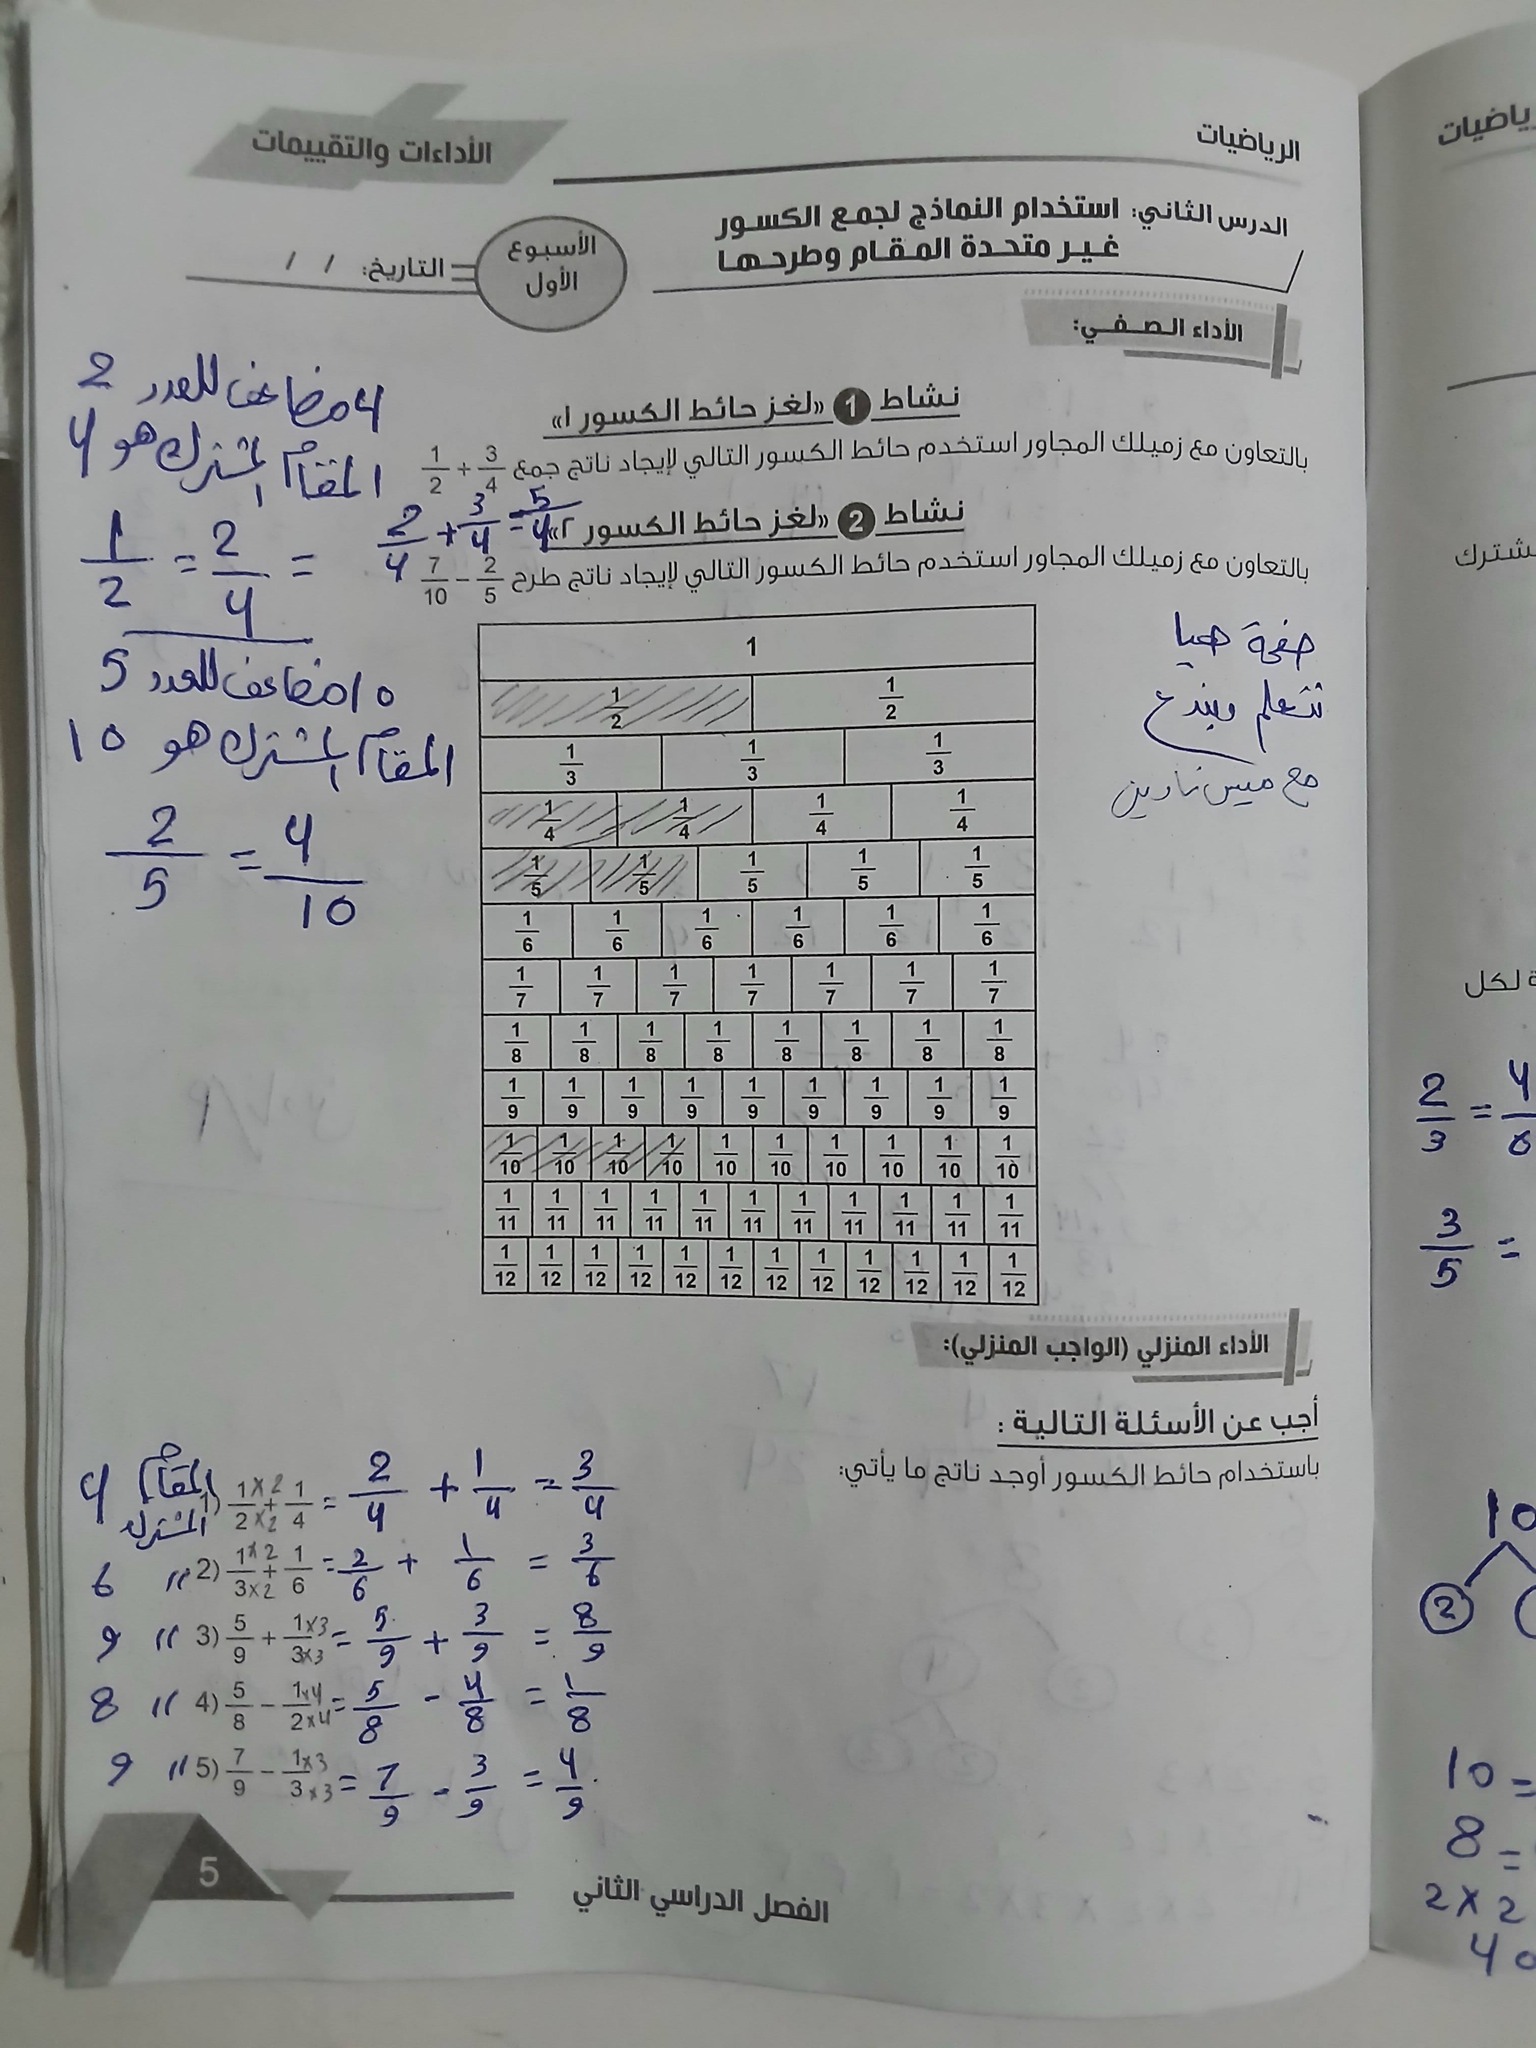 الرياضيات
الأداءات والتقييمات
الدرس الثاني: استخدام النماذج لجمع الكسور
غير متحدة المقام وطرحها
الأسبوع
الأول
التاريخ: / /
الأداء الصفي:
نشاط 1 «لغز حائط الكسور ١»
بالتعاون مع زميلك المجاور استخدم حائط الكسور التالي لإيجاد ناتج جمع 3/4 + 1/2
4 مضاعف للعدد 2
المقام المشترك هو 4
1/2 = 2/4 = 2/4 + 3/4 = 5/4
نشاط 2 «لغز حائط الكسور ٢»
بالتعاون مع زميلك المجاور استخدم حائط الكسور التالي لإيجاد ناتج طرح 7/10 - 2/5
10 مضاعف للعدد 5
المقام المشترك هو 10
2/5 = 4/10
صفحة هيا
نتعلم ونبدع
مع ميس نادين
1
1/2 1/2
1/3 1/3 1/3
1/4 1/4 1/4 1/4
1/5 1/5 1/5 1/5 1/5
1/6 1/6 1/6 1/6 1/6 1/6
1/7 1/7 1/7 1/7 1/7 1/7 1/7
1/8 1/8 1/8 1/8 1/8 1/8 1/8 1/8
1/9 1/9 1/9 1/9 1/9 1/9 1/9 1/9 1/9
1/10 1/10 1/10 1/10 1/10 1/10 1/10 1/10 1/10 1/10
1/11 1/11 1/11 1/11 1/11 1/11 1/11 1/11 1/11 1/11 1/11
1/12 1/12 1/12 1/12 1/12 1/12 1/12 1/12 1/12 1/12 1/12 1/12
الأداء المنزلي (الواجب المنزلي):
أجب عن الأسئلة التالية :
باستخدام حائط الكسور أوجد ناتج ما يأتي:
المقام المشترك 4 1) 1×2/2×2 + 1/4 = 2/4 + 1/4 = 3/4
6 〃 2) 1×2/3×2 + 1/6 = 2/6 + 1/6 = 3/6
9 〃 3) 5/9 + 1×3/3×3 = 5/9 + 3/9 = 8/9
8 〃 4) 5/8 - 1×4/2×4 = 5/8 - 4/8 = 1/8
9 〃 5) 7/9 - 1×3/3×3 = 7/9 - 3/9 = 4/9
5
الفصل الدراسي الثاني
2/3 = 4/6
3/5 =
10
2
10 =
8 =
2 × 2